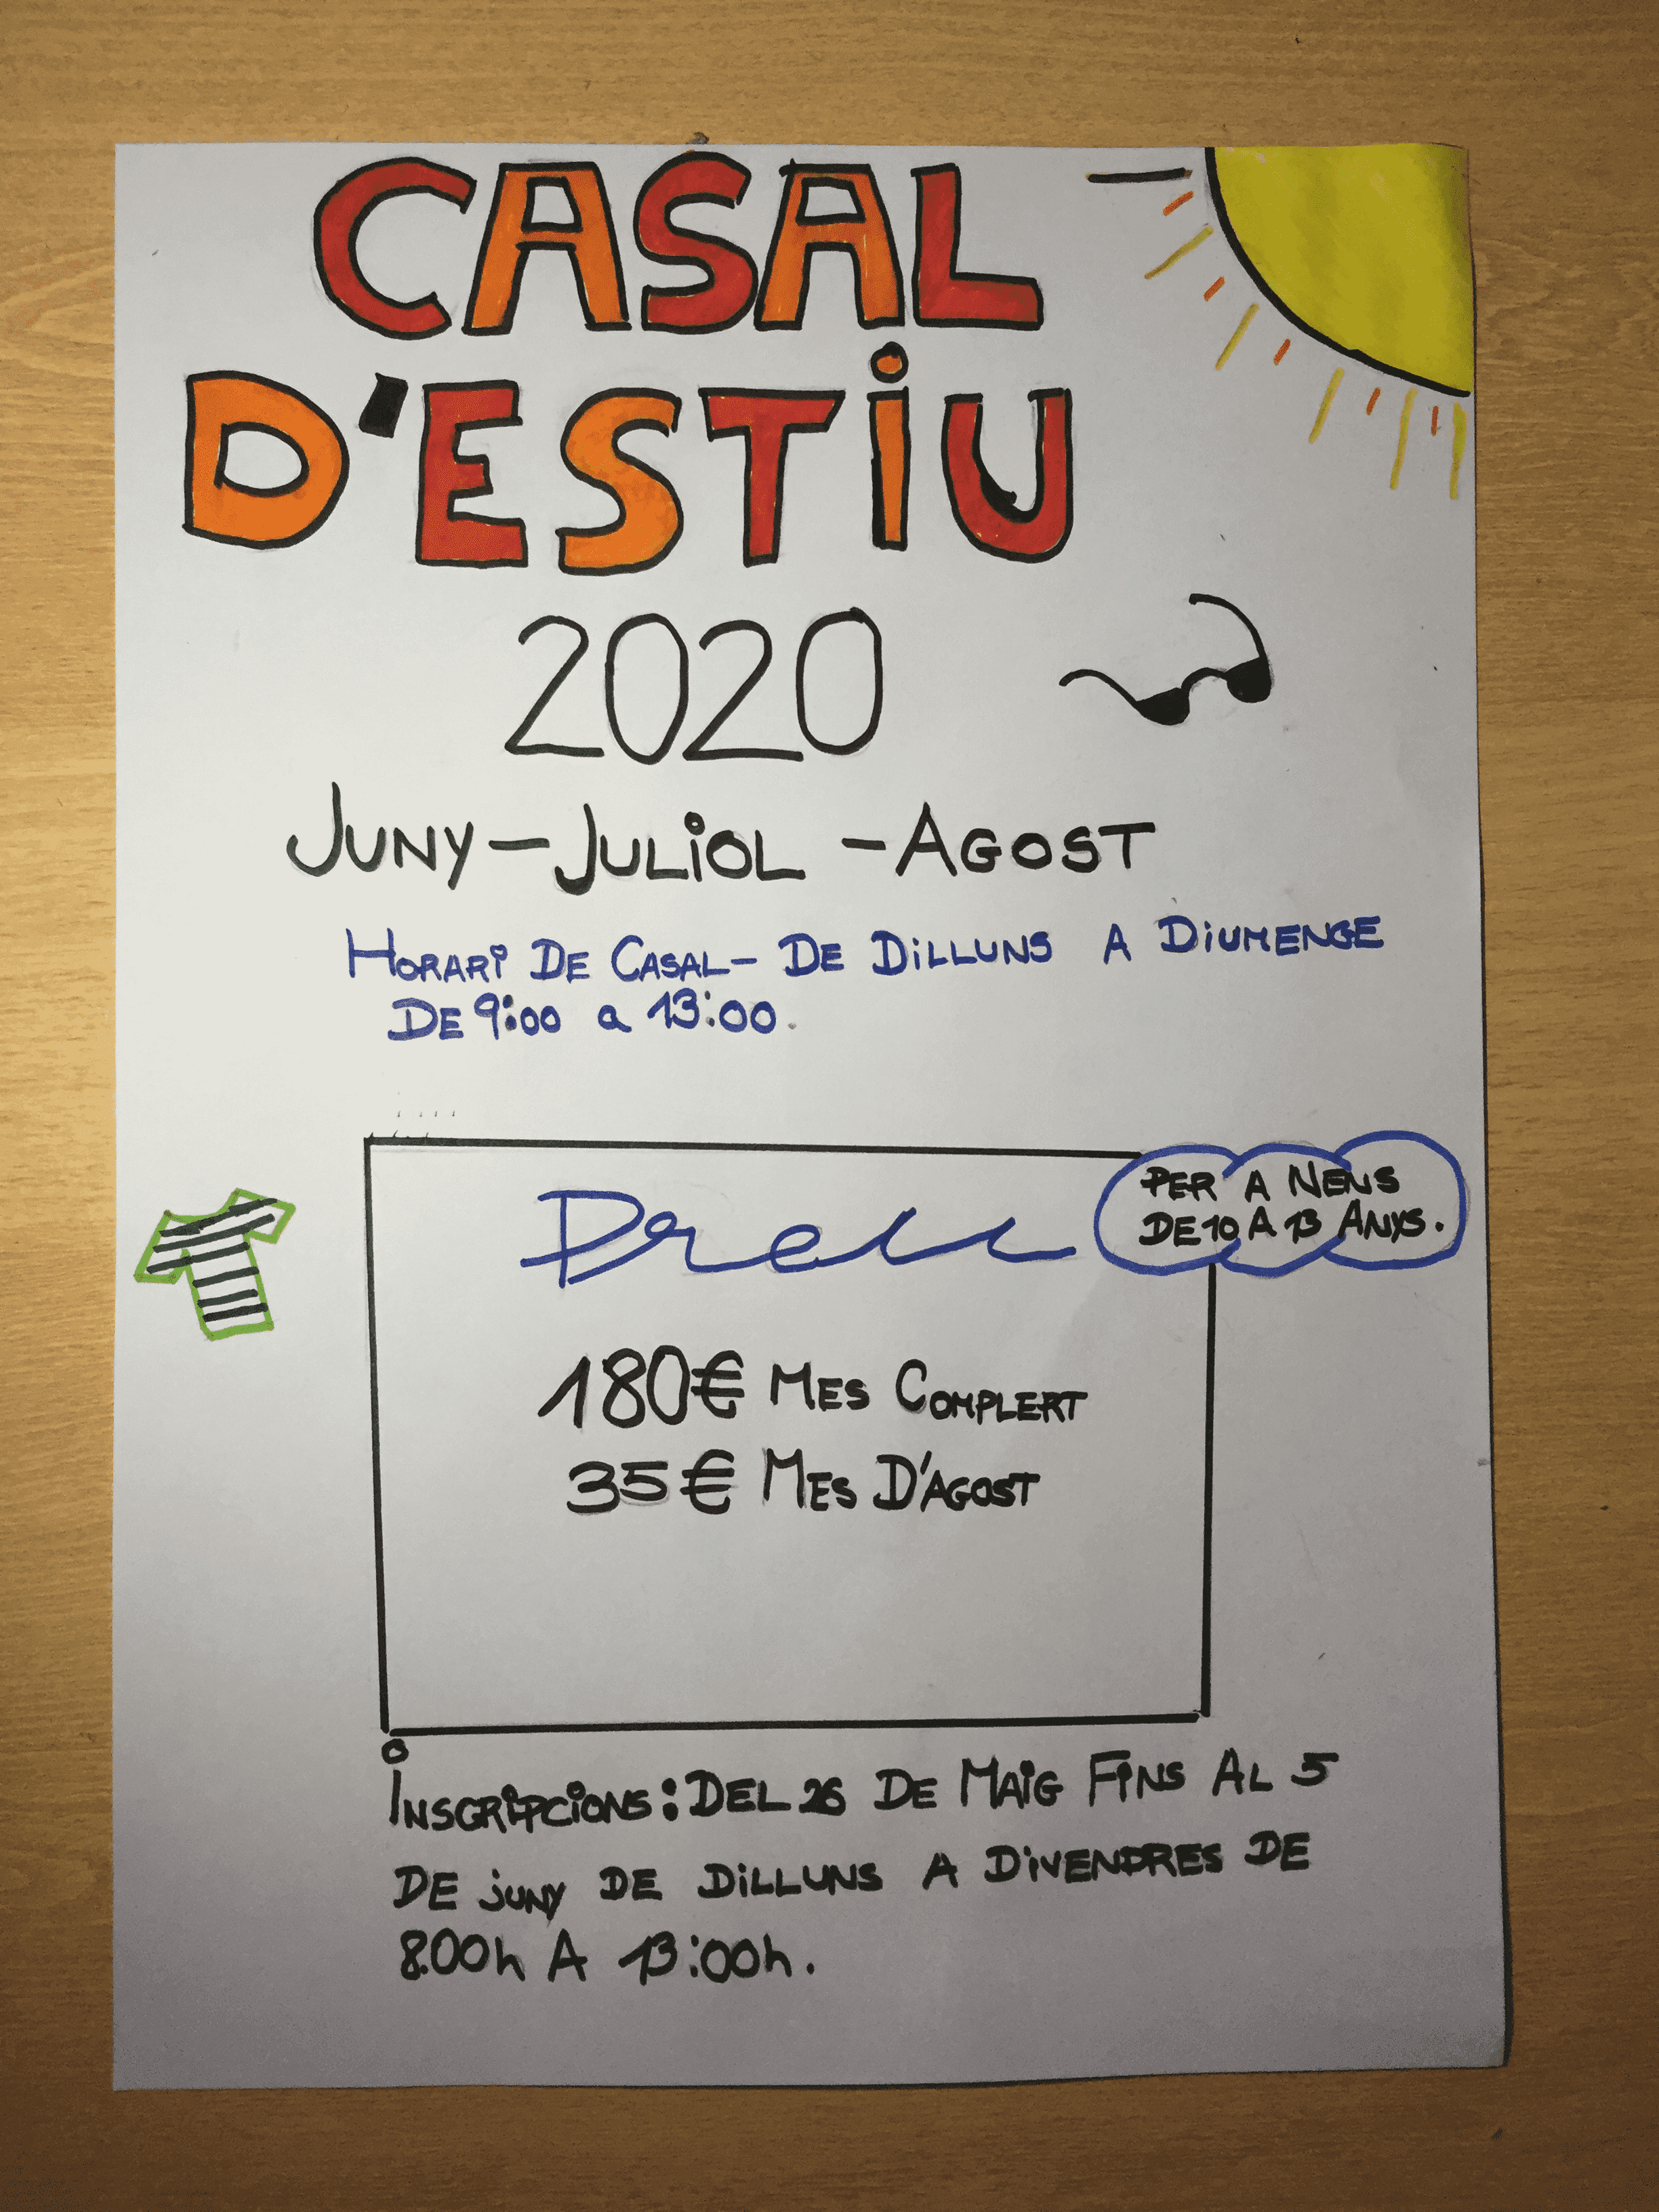 CASAL
D'ESTiU
2020
JUNY - JULiOL - AGOST
HORARi DE CASAL - DE DiLLUNS A DiUMENGE
DE 9:00 a 13:00.
PER A NENS
DE 10 A 13 ANYS.
180€ MES COMPLERT
35€ MES D'AGOST
iNSCRiPCiONS: DEL 26 DE MAiG FiNS AL 5
DE juNY DE DiLLUNS A DiVENDRES DE
8.00h A 13:00h.